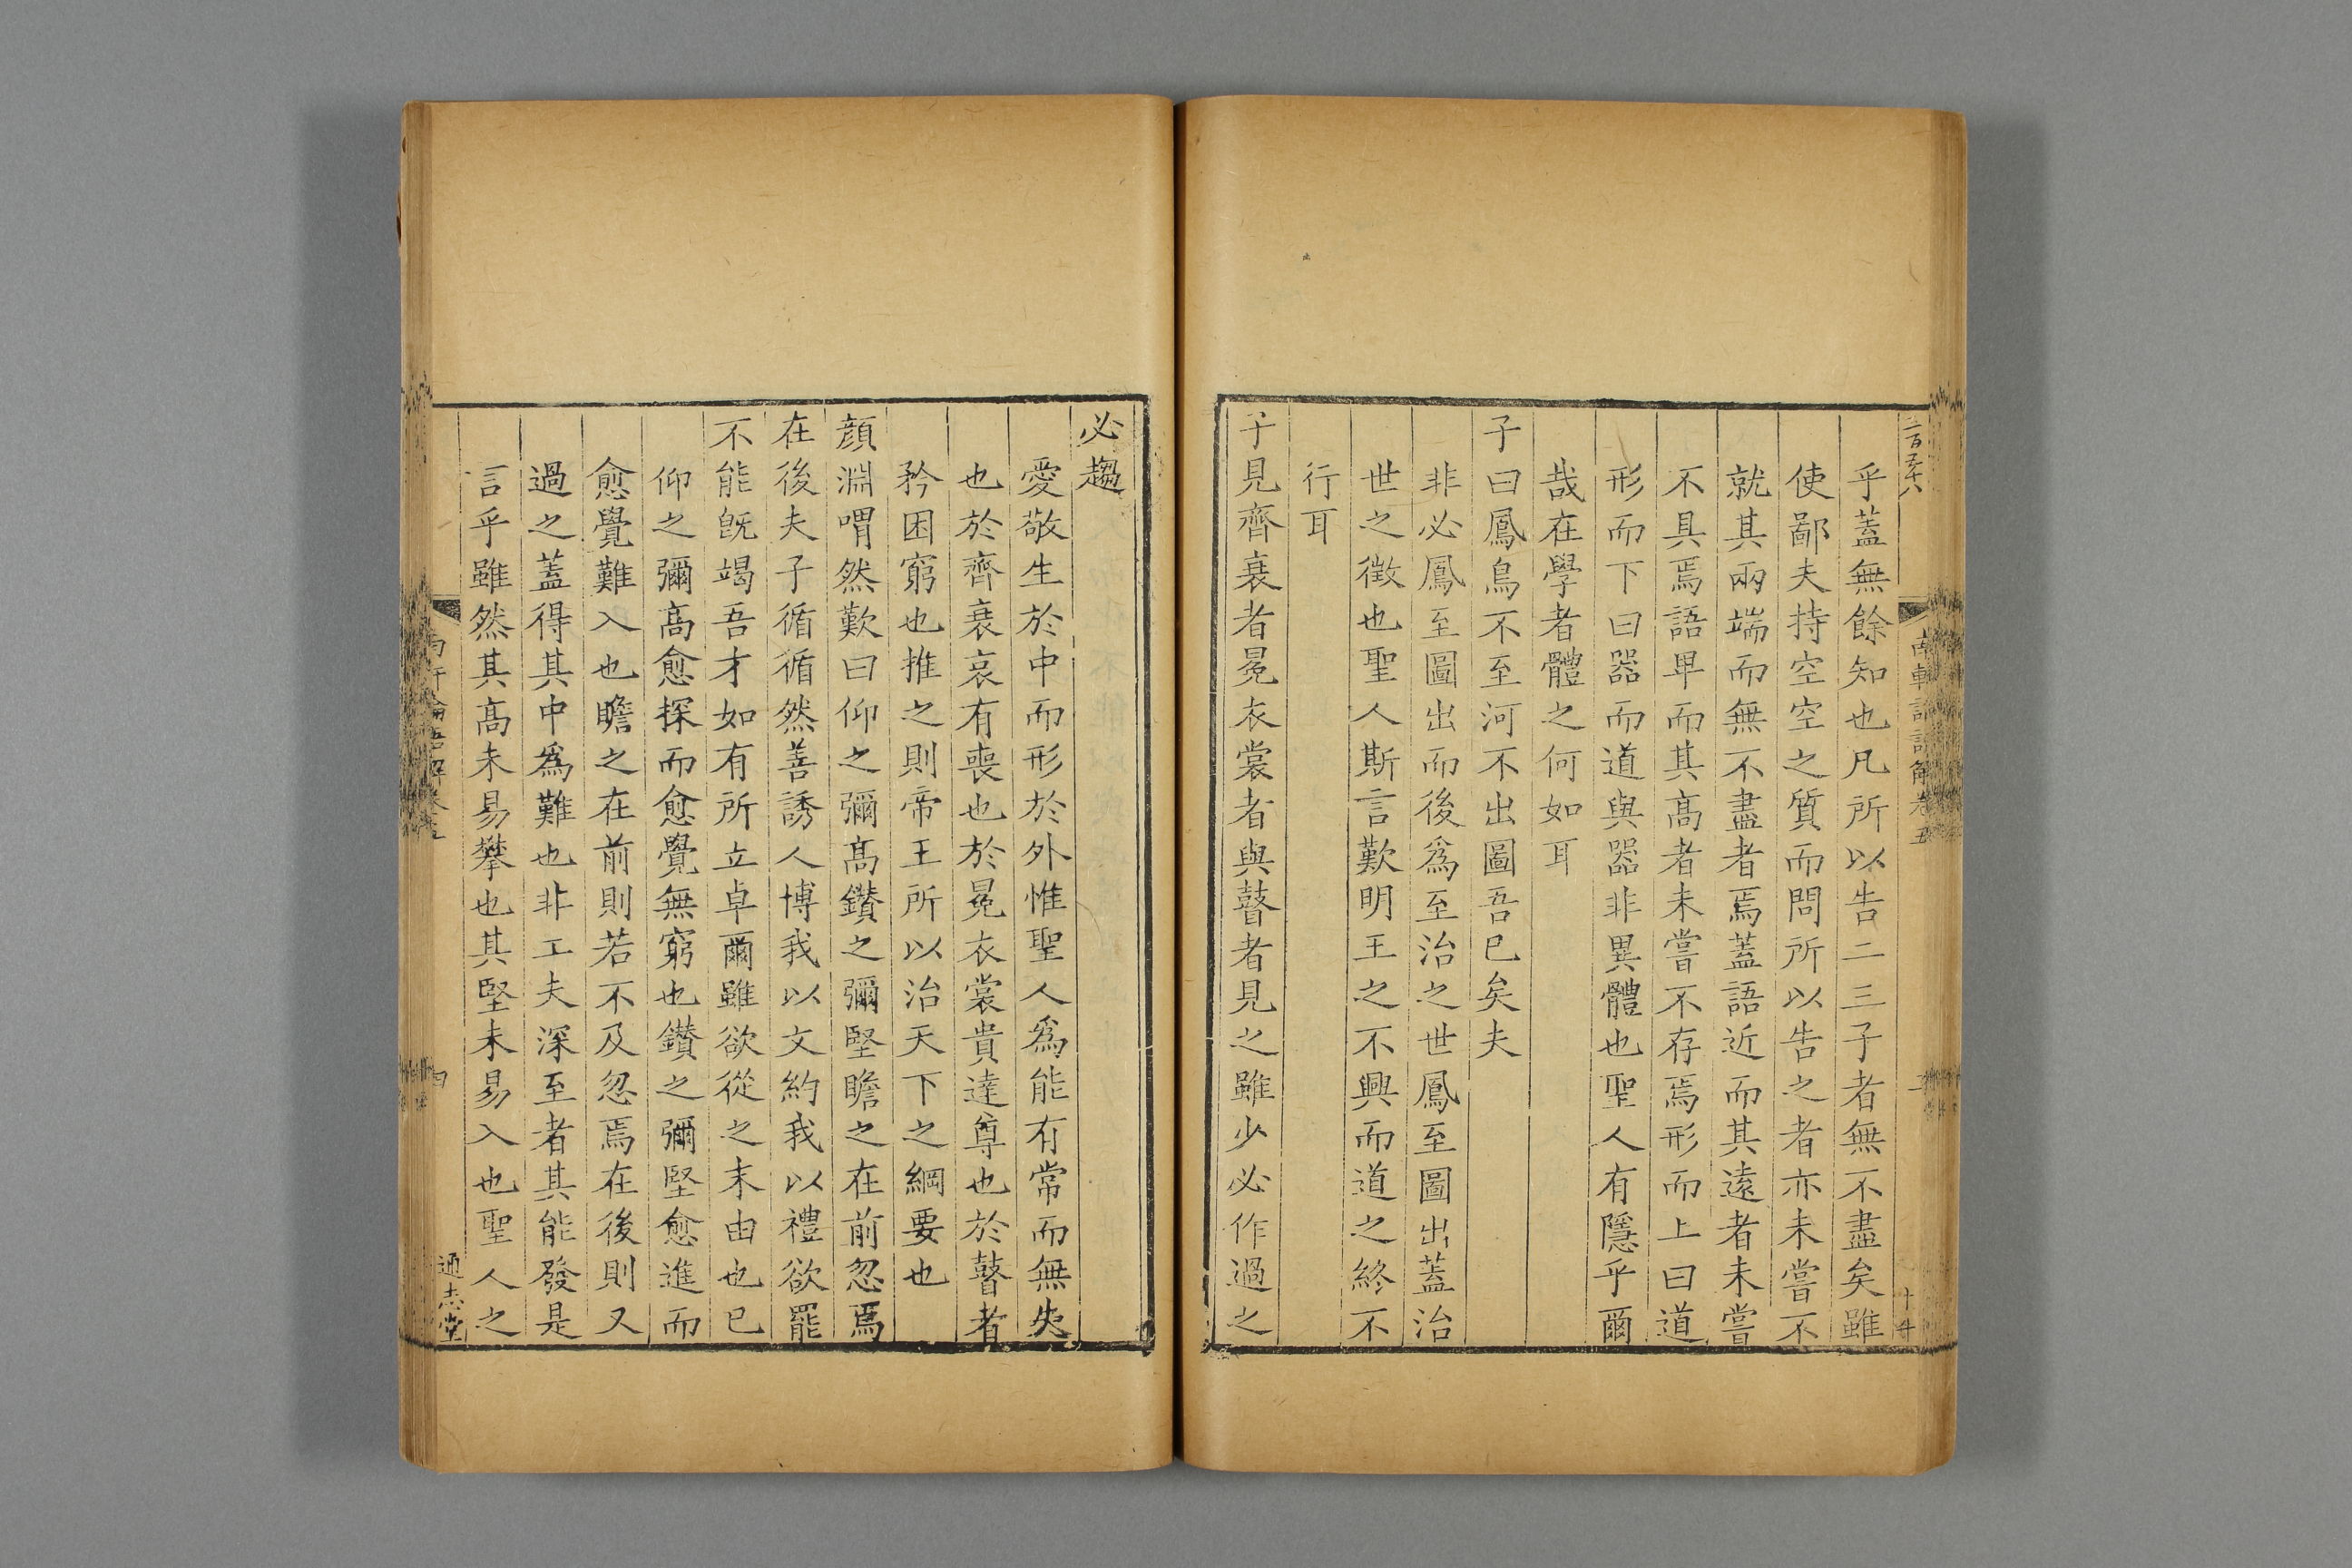 乎蓋無餘知也凡所以告二三子者無不盡矣雖
使鄙夫持空空之質而問所以告之者亦未嘗不
就其兩端而無不盡者焉蓋語近而其遠者未嘗
不具焉語卑而其高者未嘗不存焉形而上曰道
形而下曰器而道與器非異體也聖人有隱乎爾
哉在學者體之何如耳
子曰鳳鳥不至河不出圖吾已矣夫
非必鳳至圖出而後爲至治之世鳳至圖出蓋治
世之徵也聖人斯言歎明王之不興而道之終不
行耳
子見齊衰者冕衣裳者與瞽者見之雖少必作過之
必趨
愛敬生於中而形於外惟聖人爲能有常而無失
也於齊衰哀有喪也於冕衣裳貴達尊也於瞽者
矜困窮也推之則帝王所以治天下之綱要也
顔淵喟然歎曰仰之彌高鑽之彌堅瞻之在前忽焉
在後夫子循循然善誘人博我以文約我以禮欲罷
不能旣竭吾才如有所立卓爾雖欲從之末由也已
仰之彌高愈探而愈覺無窮也鑽之彌堅愈進而
愈覺難入也瞻之在前則若不及忽焉在後則又
過之蓋得其中爲難也非工夫深至者其能發是
言乎雖然其高未易攀也其堅未易入也聖人之
通志堂